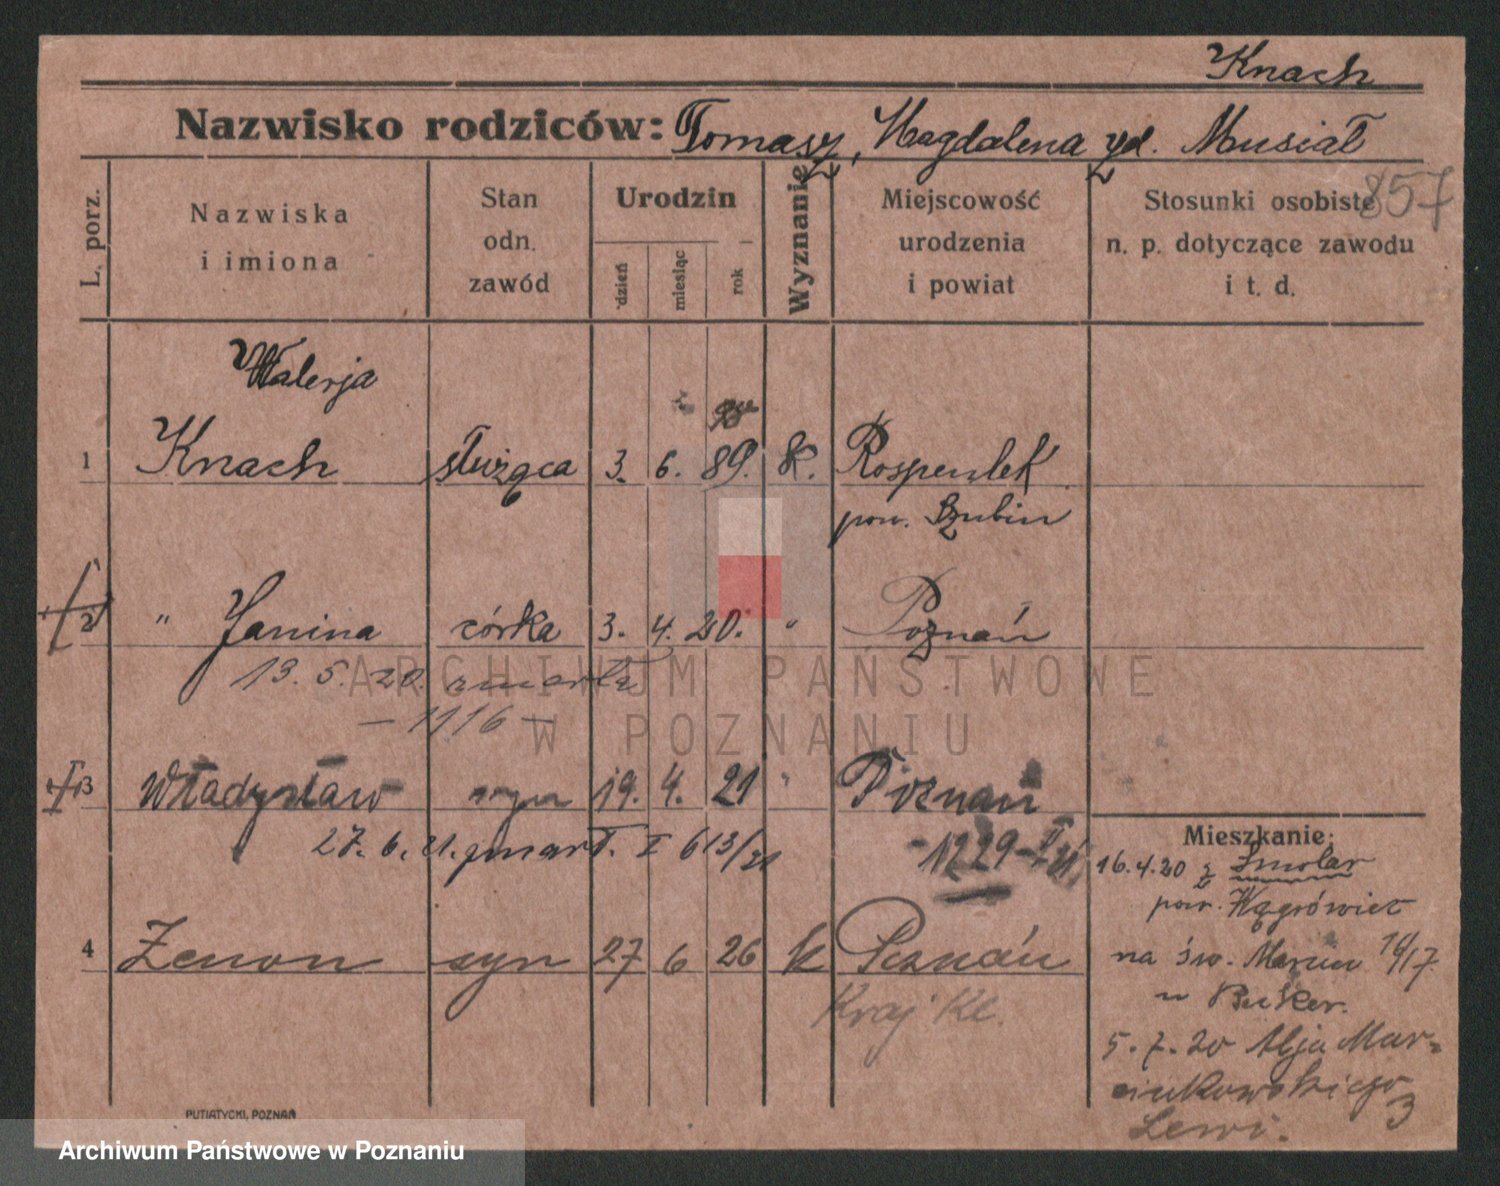 Knach
Nazwisko rodziców: Tomasz, Magdalena zd. Musiał
857
L. porz.
Nazwiska
i imiona
Stan
odn.
zawód
Urodzin
dzień
miesiąc
rok
Wyznanie
Miejscowość
urodzenia
i powiat
Stosunki osobiste
n. p. dotyczące zawodu
i t. d.
Walerja
1 Knach służąca 3. 6. 89. k. Rospentek
pow. Szubin
2 " Janina córka 3. 4. 20. " Poznań
13. 5. 20. zmarła
— 1116 —
3 Władysław syn 19. 4. 21 " Poznań
27. 6. 21. zmarł. I 613/21
- 1229 -
Mieszkanie:
16.4.20 z Smolar
pow. Wągrówiec
4 Zenon syn 27 6 26 k Poznań
Kraj Kl.
na św. Marcin
u Buker.
5.7.20 Alja Mar-
cinkowskiego 3
Lewi.
PUTIATYCKI, POZNAŃ
ARCHIWUM PAŃSTWOWE
W POZNANIU
Archiwum Państwowe w Poznaniu